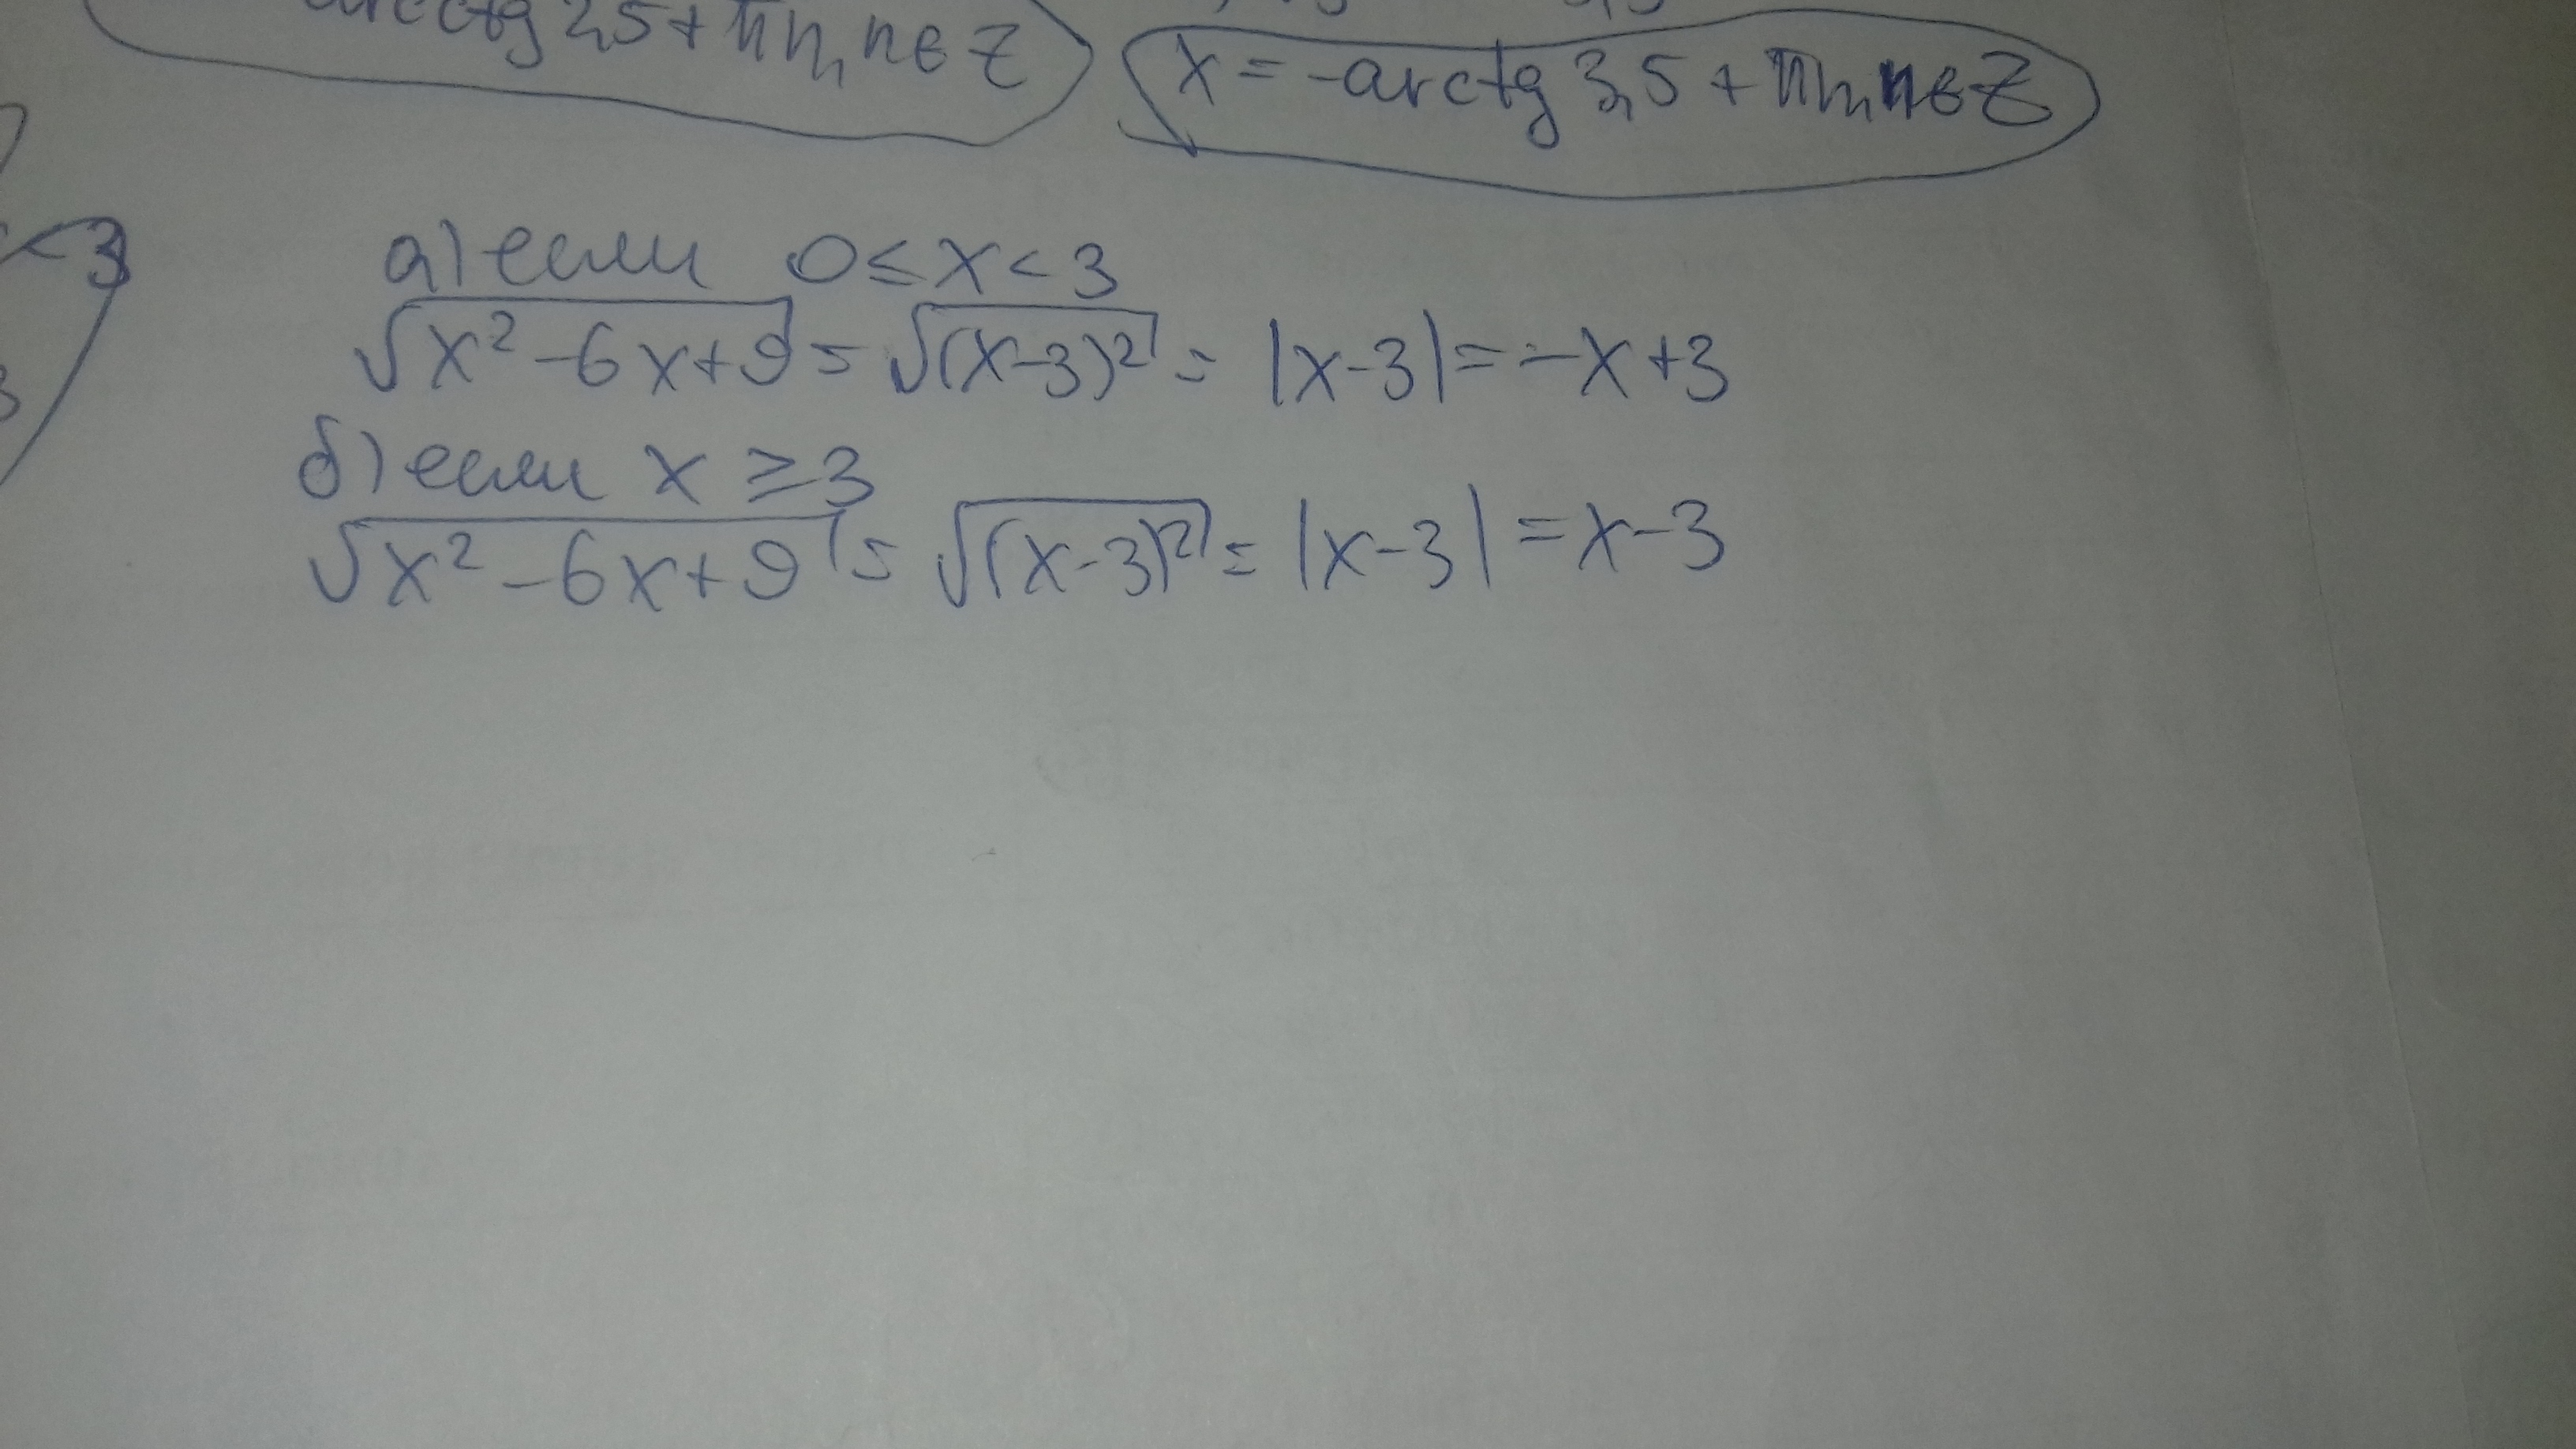 arcctg 2,5 + πn, n ∈ Z
x = -arctg 3,5 + πn, n ∈ Z
<3
а) если 0 ≤ x < 3
√(x² - 6x + 9) = √((x-3)²) = |x-3| = -x+3
б) если x ≥ 3
√(x² - 6x + 9) = √((x-3)²) = |x-3| = x-3